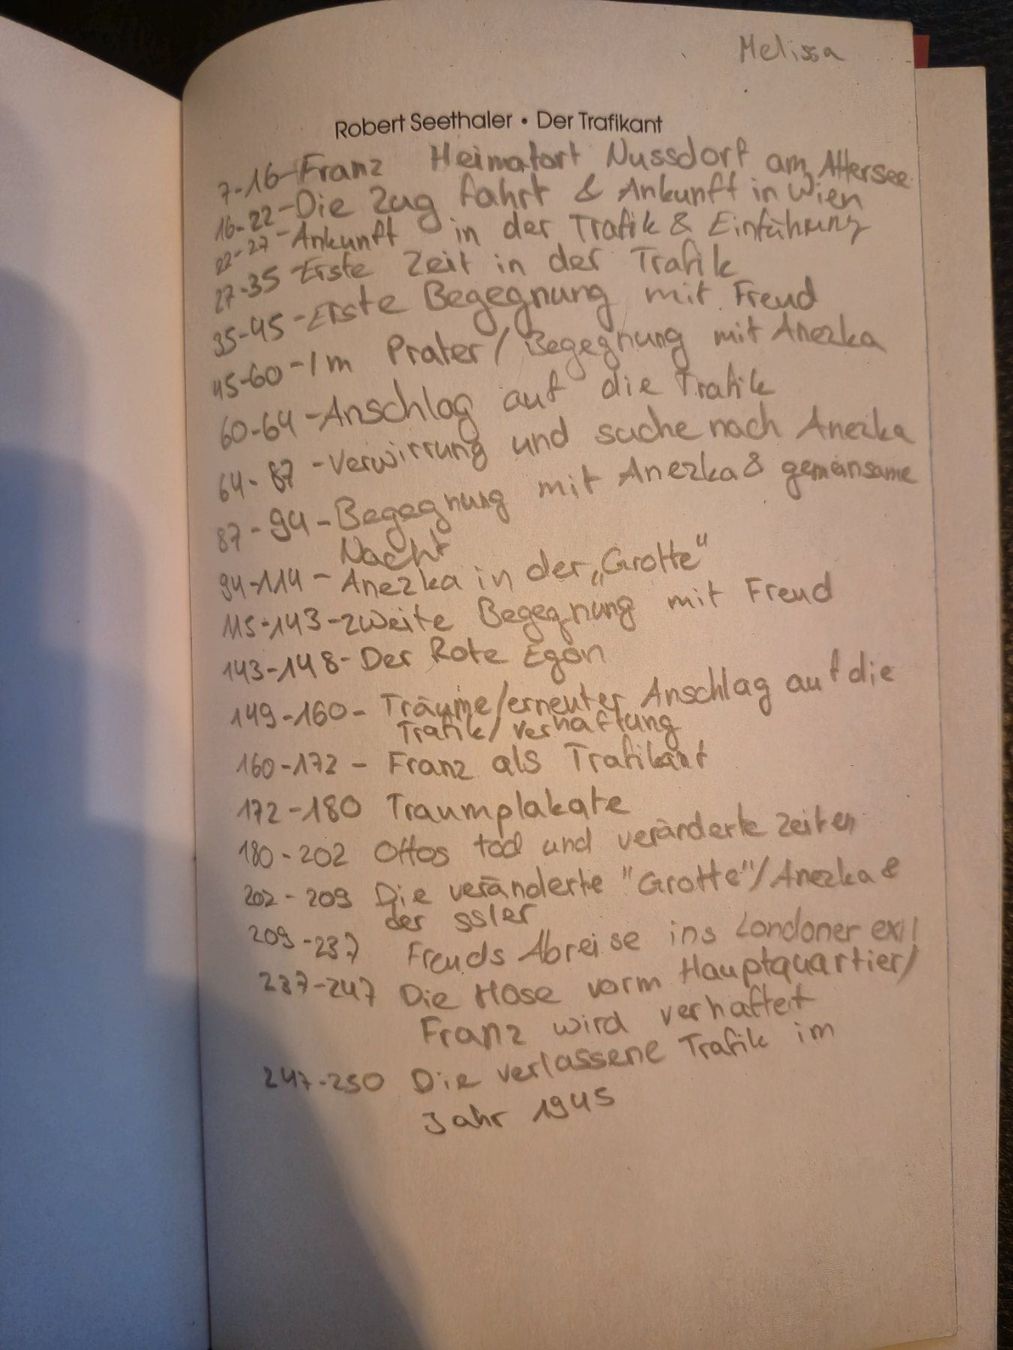 Melissa
Robert Seethaler • Der Trafikant
7-16-Franz Heimatort Nussdorf am Attersee
16-22-Die Zug fahrt & Ankunft in Wien
22-27-Ankunft in der Trafik & Einführung
27-35-Erste Zeit in der Trafik
35-45-Erste Begegnung mit Freud
45-60-Im Prater/Begegnung mit Anezka
60-64-Anschlag auf die Trafik
64-87-Verwirrung und suche nach Anezka
87-94-Begegnung mit Anezka & gemeinsame
Nacht
94-114-Anezka in der „Grotte"
115-143-zweite Begegnung mit Freud
143-148-Der Rote Egon
149-160-Träume/erneuter Anschlag auf die
Trafik/Verhaftung
160-172-Franz als Trafikant
172-180 Traumplakate
180-202 Ottos tod und veränderte Zeiten
202-209 Die veränderte "Grotte"/Anezka &
der ssler
209-237 Freuds Abreise ins Londoner exil
237-247 Die Hose vorm Hauptquartier/
Franz wird verhaftet
247-250 Die verlassene Trafik im
Jahr 1945